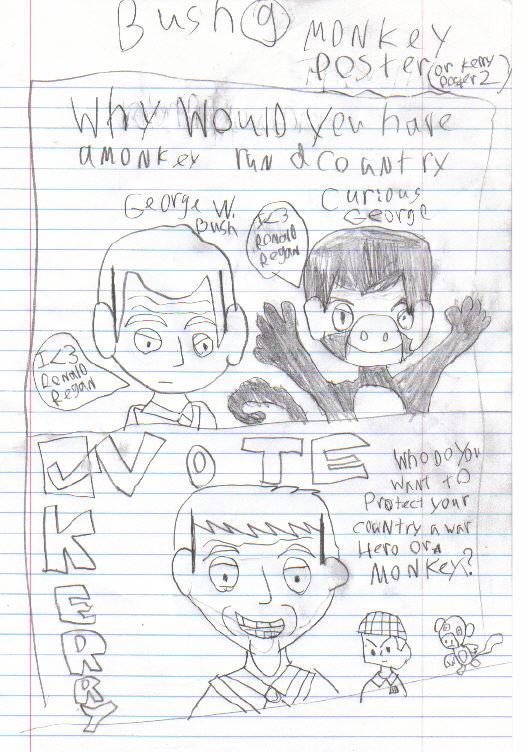 Bush
MONKEY
Poster (or Kerry
poster 2)
Why Would you have
a MONKEY run d Country
George W.
Bush
Curious
George
I<3
Ronald
Regan
I<3
Ronald
Regan
VOTE
KERRY
Who Do you
want to
Protect your
country a war
Hero Or A
MONKEY?